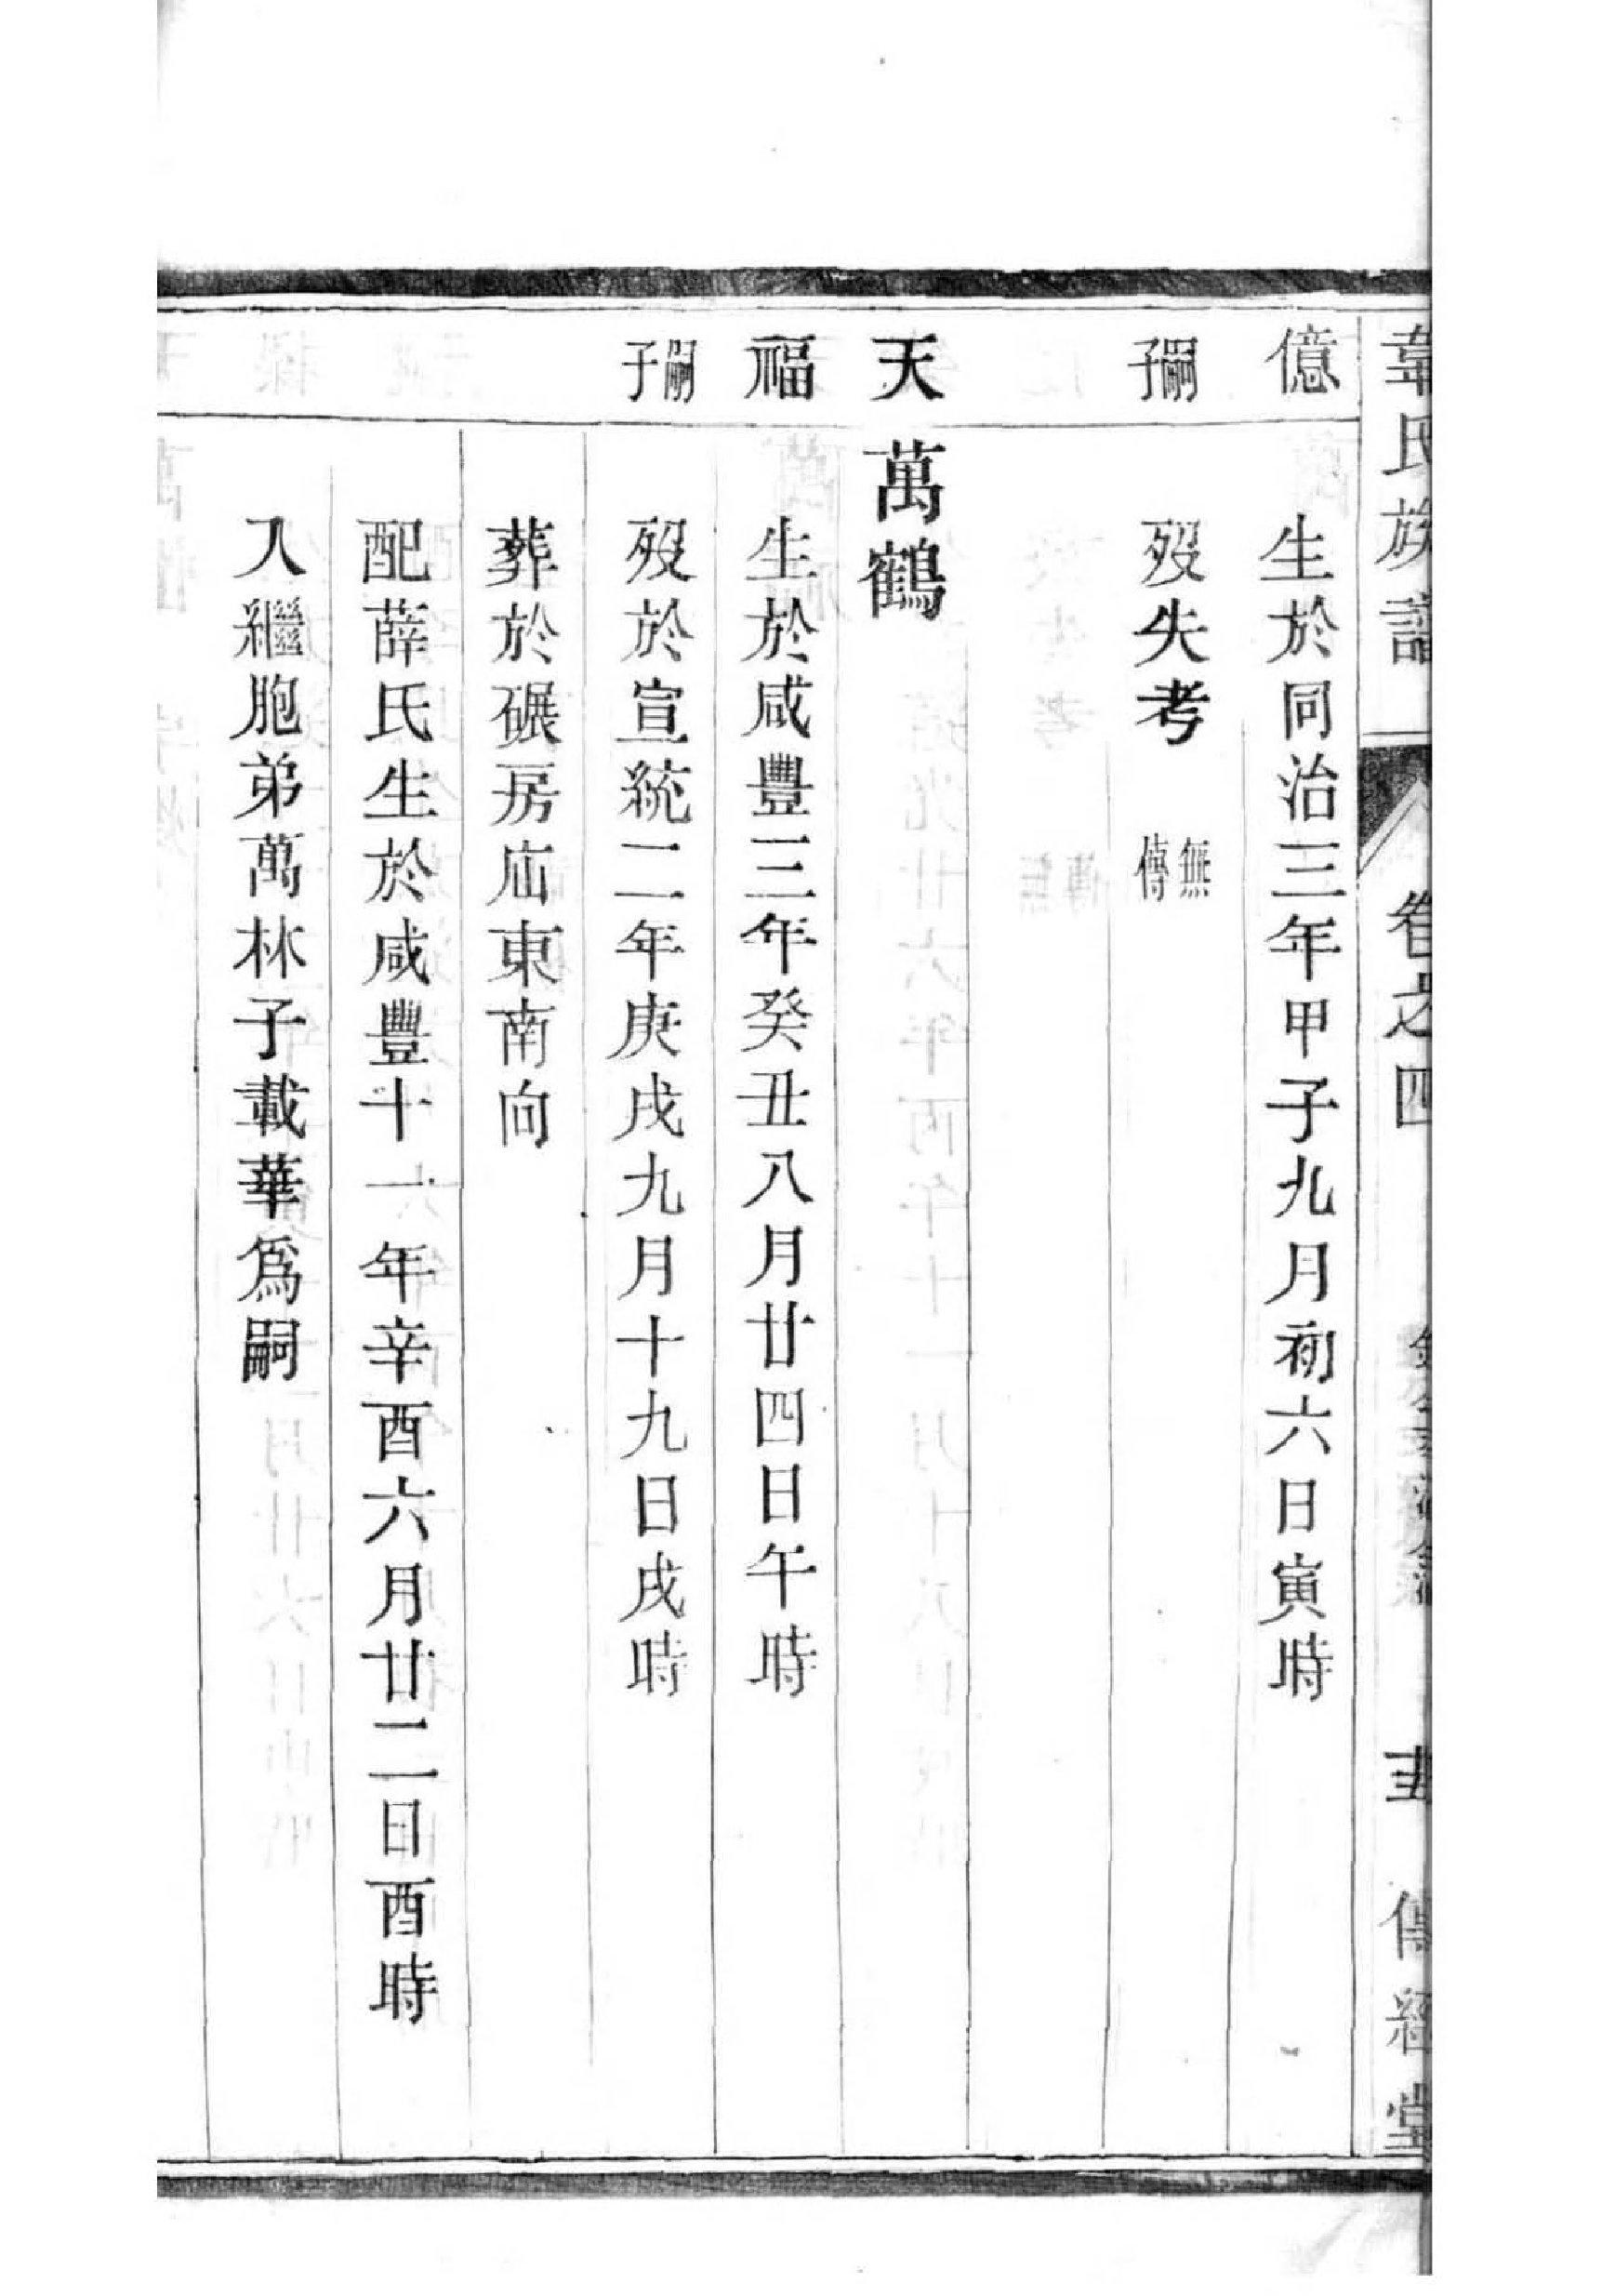 韋氏族譜 卷之四 傳經堂
億 生於同治三年甲子九月初六日寅時
嗣子 歿失考 無傳
天 萬鶴
福 生於咸豐三年癸丑八月廿四日午時
嗣子 歿於宣統二年庚戌九月十九日戌時
葬於碾房庙東南向
配薛氏生於咸豐十一年辛酉六月廿二日酉時
入繼胞弟萬林子載華爲嗣